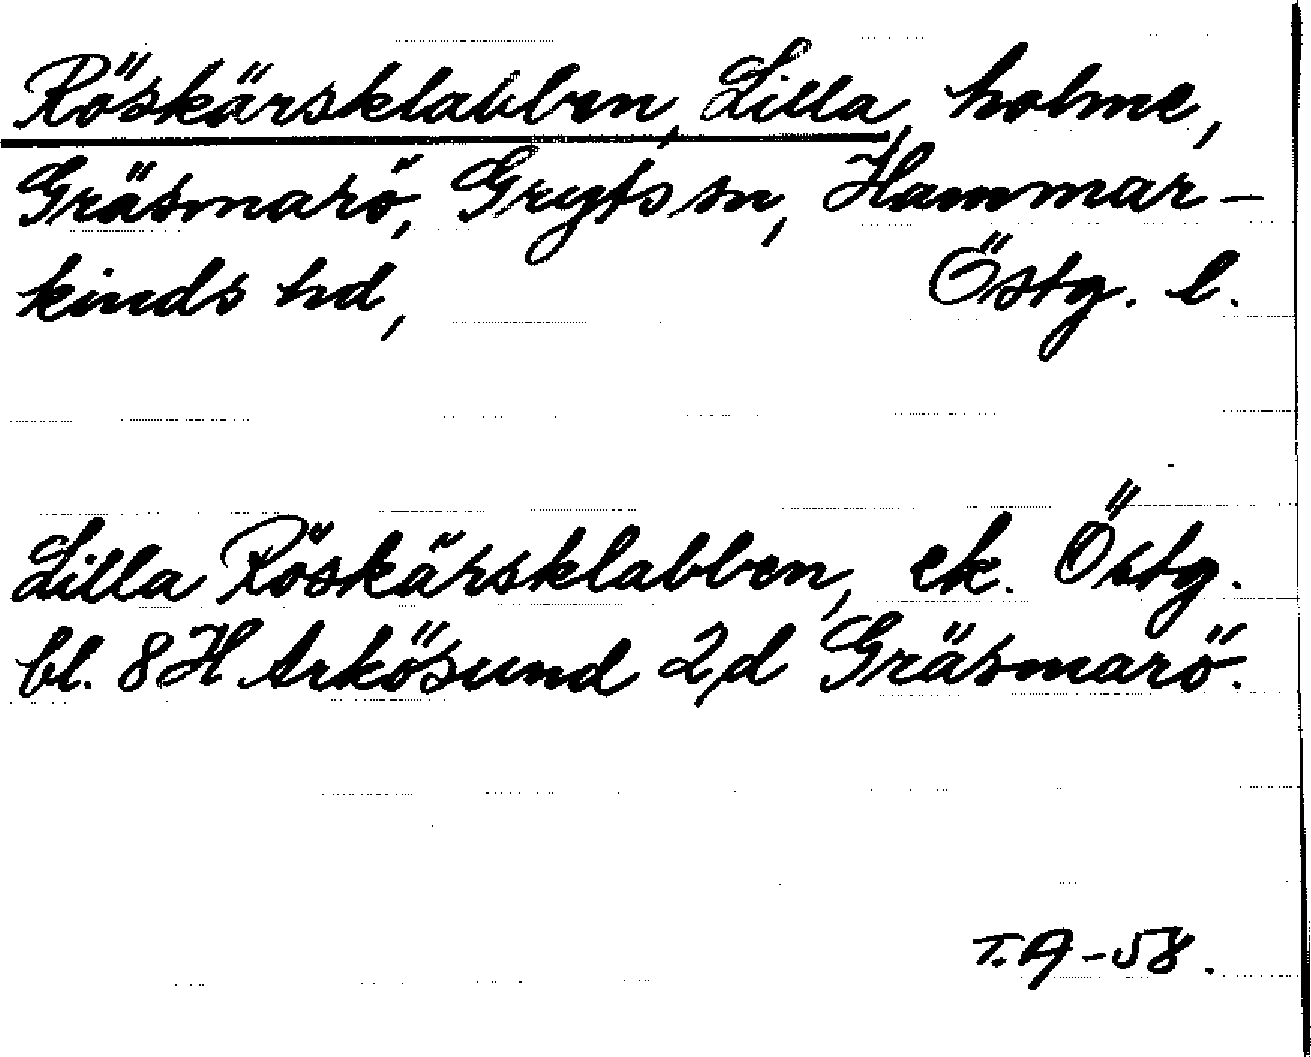 Röskärsklabben, Lilla, holme,
Gräsmarö, Gryts sn, Hammar-
kinds hd, Östg. l.
Lilla Röskärsklabben, ek. Östg.
bl. 8 H Arkösund 2,d Gräsmarö.
T.A-58.